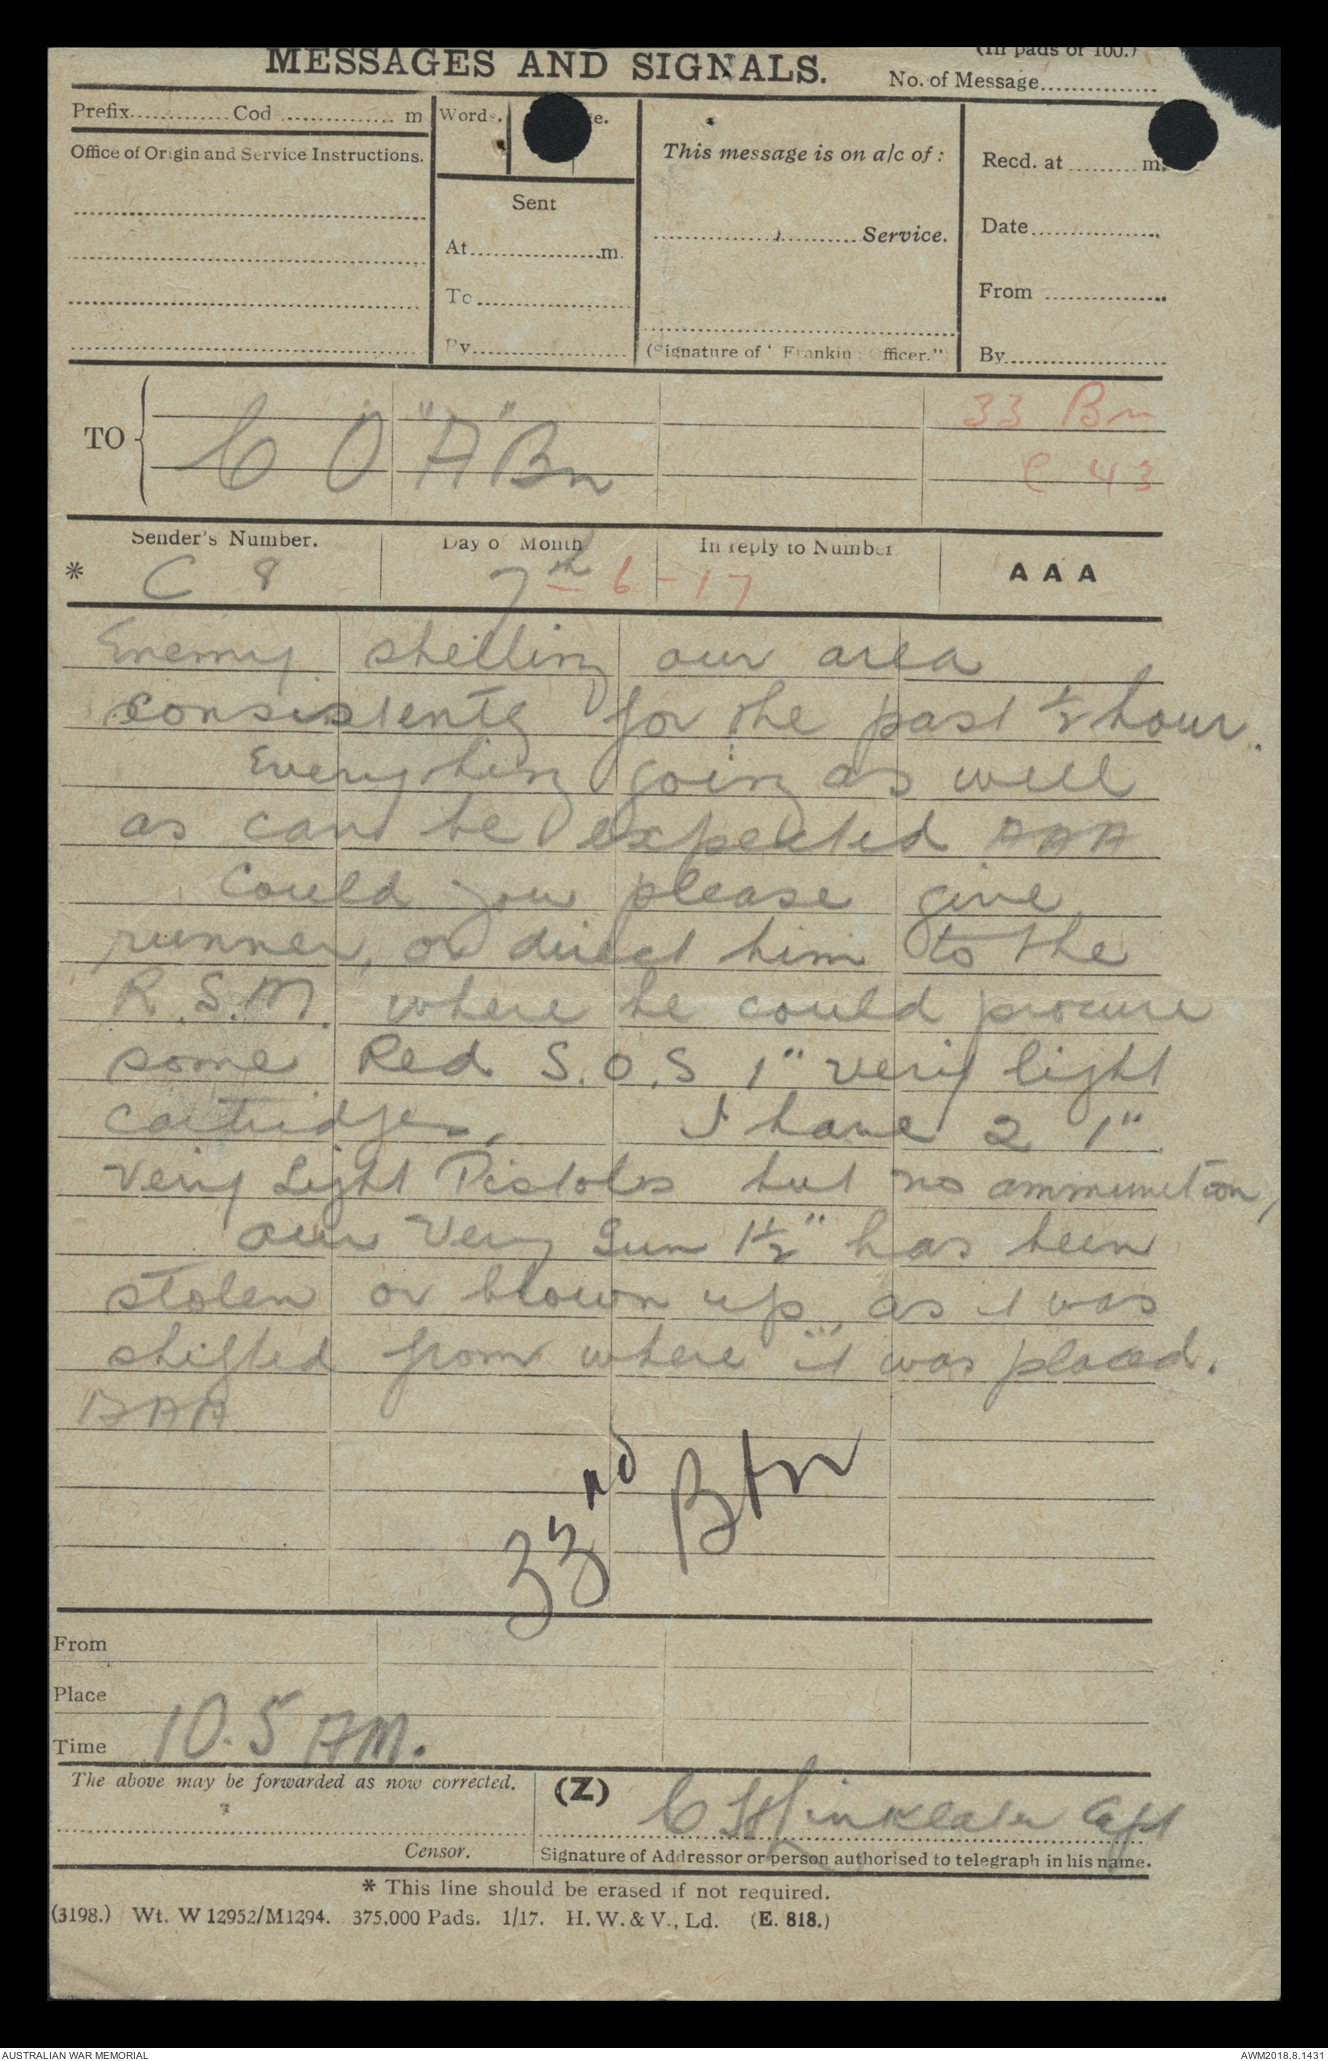 MESSAGES AND SIGNALS.
(In pads of 100.)
No. of Message
Prefix Cod m
Words.
This message is on a/c of :
Recd. at m.
Office of Origin and Service Instructions.
Sent
Service.
Date
At m.
To
From
By
(Signature of "Franking Officer.")
By
TO
C O "A" Bn
33 Bn
C 43
Sender's Number.
Day of Month
In reply to Number
AAA
* C 8
7th 6-17
Enemy shelling our area
consistently for the past ½ hour.
Everything going as well
as can be expected AAA
Could you please give
runner, or direct him to the
R.S.M. where he could procure
some Red S.O.S 1" very light
cartridges, I have 2 1"
Very Light Pistols but no ammunition,
our Very Gun 1½" has been
stolen or blown up, as it was
shifted from where it was placed.
AAA
33rd Btn
From
Place
Time 10.5 AM.
The above may be forwarded as now corrected.
(Z)
C Hinklater Capt
Censor.
Signature of Addressor or person authorised to telegraph in his name.
* This line should be erased if not required.
(3198.) Wt. W 12952/M1294. 375,000 Pads. 1/17. H. W. & V., Ld. (E. 818.)
AUSTRALIAN WAR MEMORIAL
AWM2018.8.1431